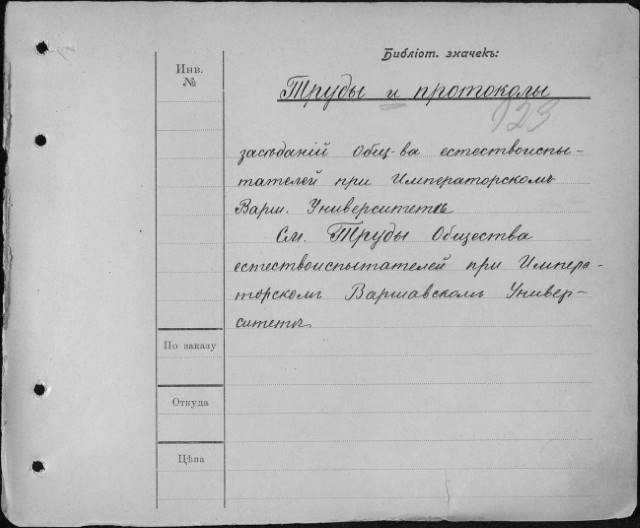 Библіот. значекъ:
Инв.
№
Труды и протоколы
123
засѣданій Общ-ва естествоиспы-
тателей при Императорскомъ
Варш. Университетѣ
См. Труды Общества
естествоиспытателей при Импера-
торскомъ Варшавскомъ Универ-
ситетѣ
По заказу
Откуда
Цѣна